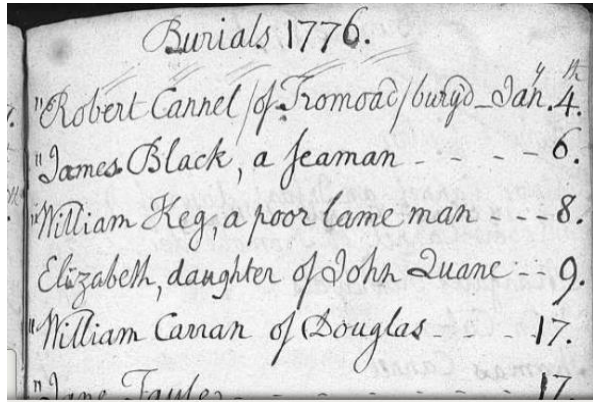 Burials 1776.
"Robert Cannel /of Tromoad/ buryd - Jan.y 4.th
"James Black, a seaman - - - - 6.
"William Keg, a poor lame man - - - 8.
Elizabeth, daughter of John Quane - - 9.
"William Carran of Douglas - - - 17.
"Jane 17.